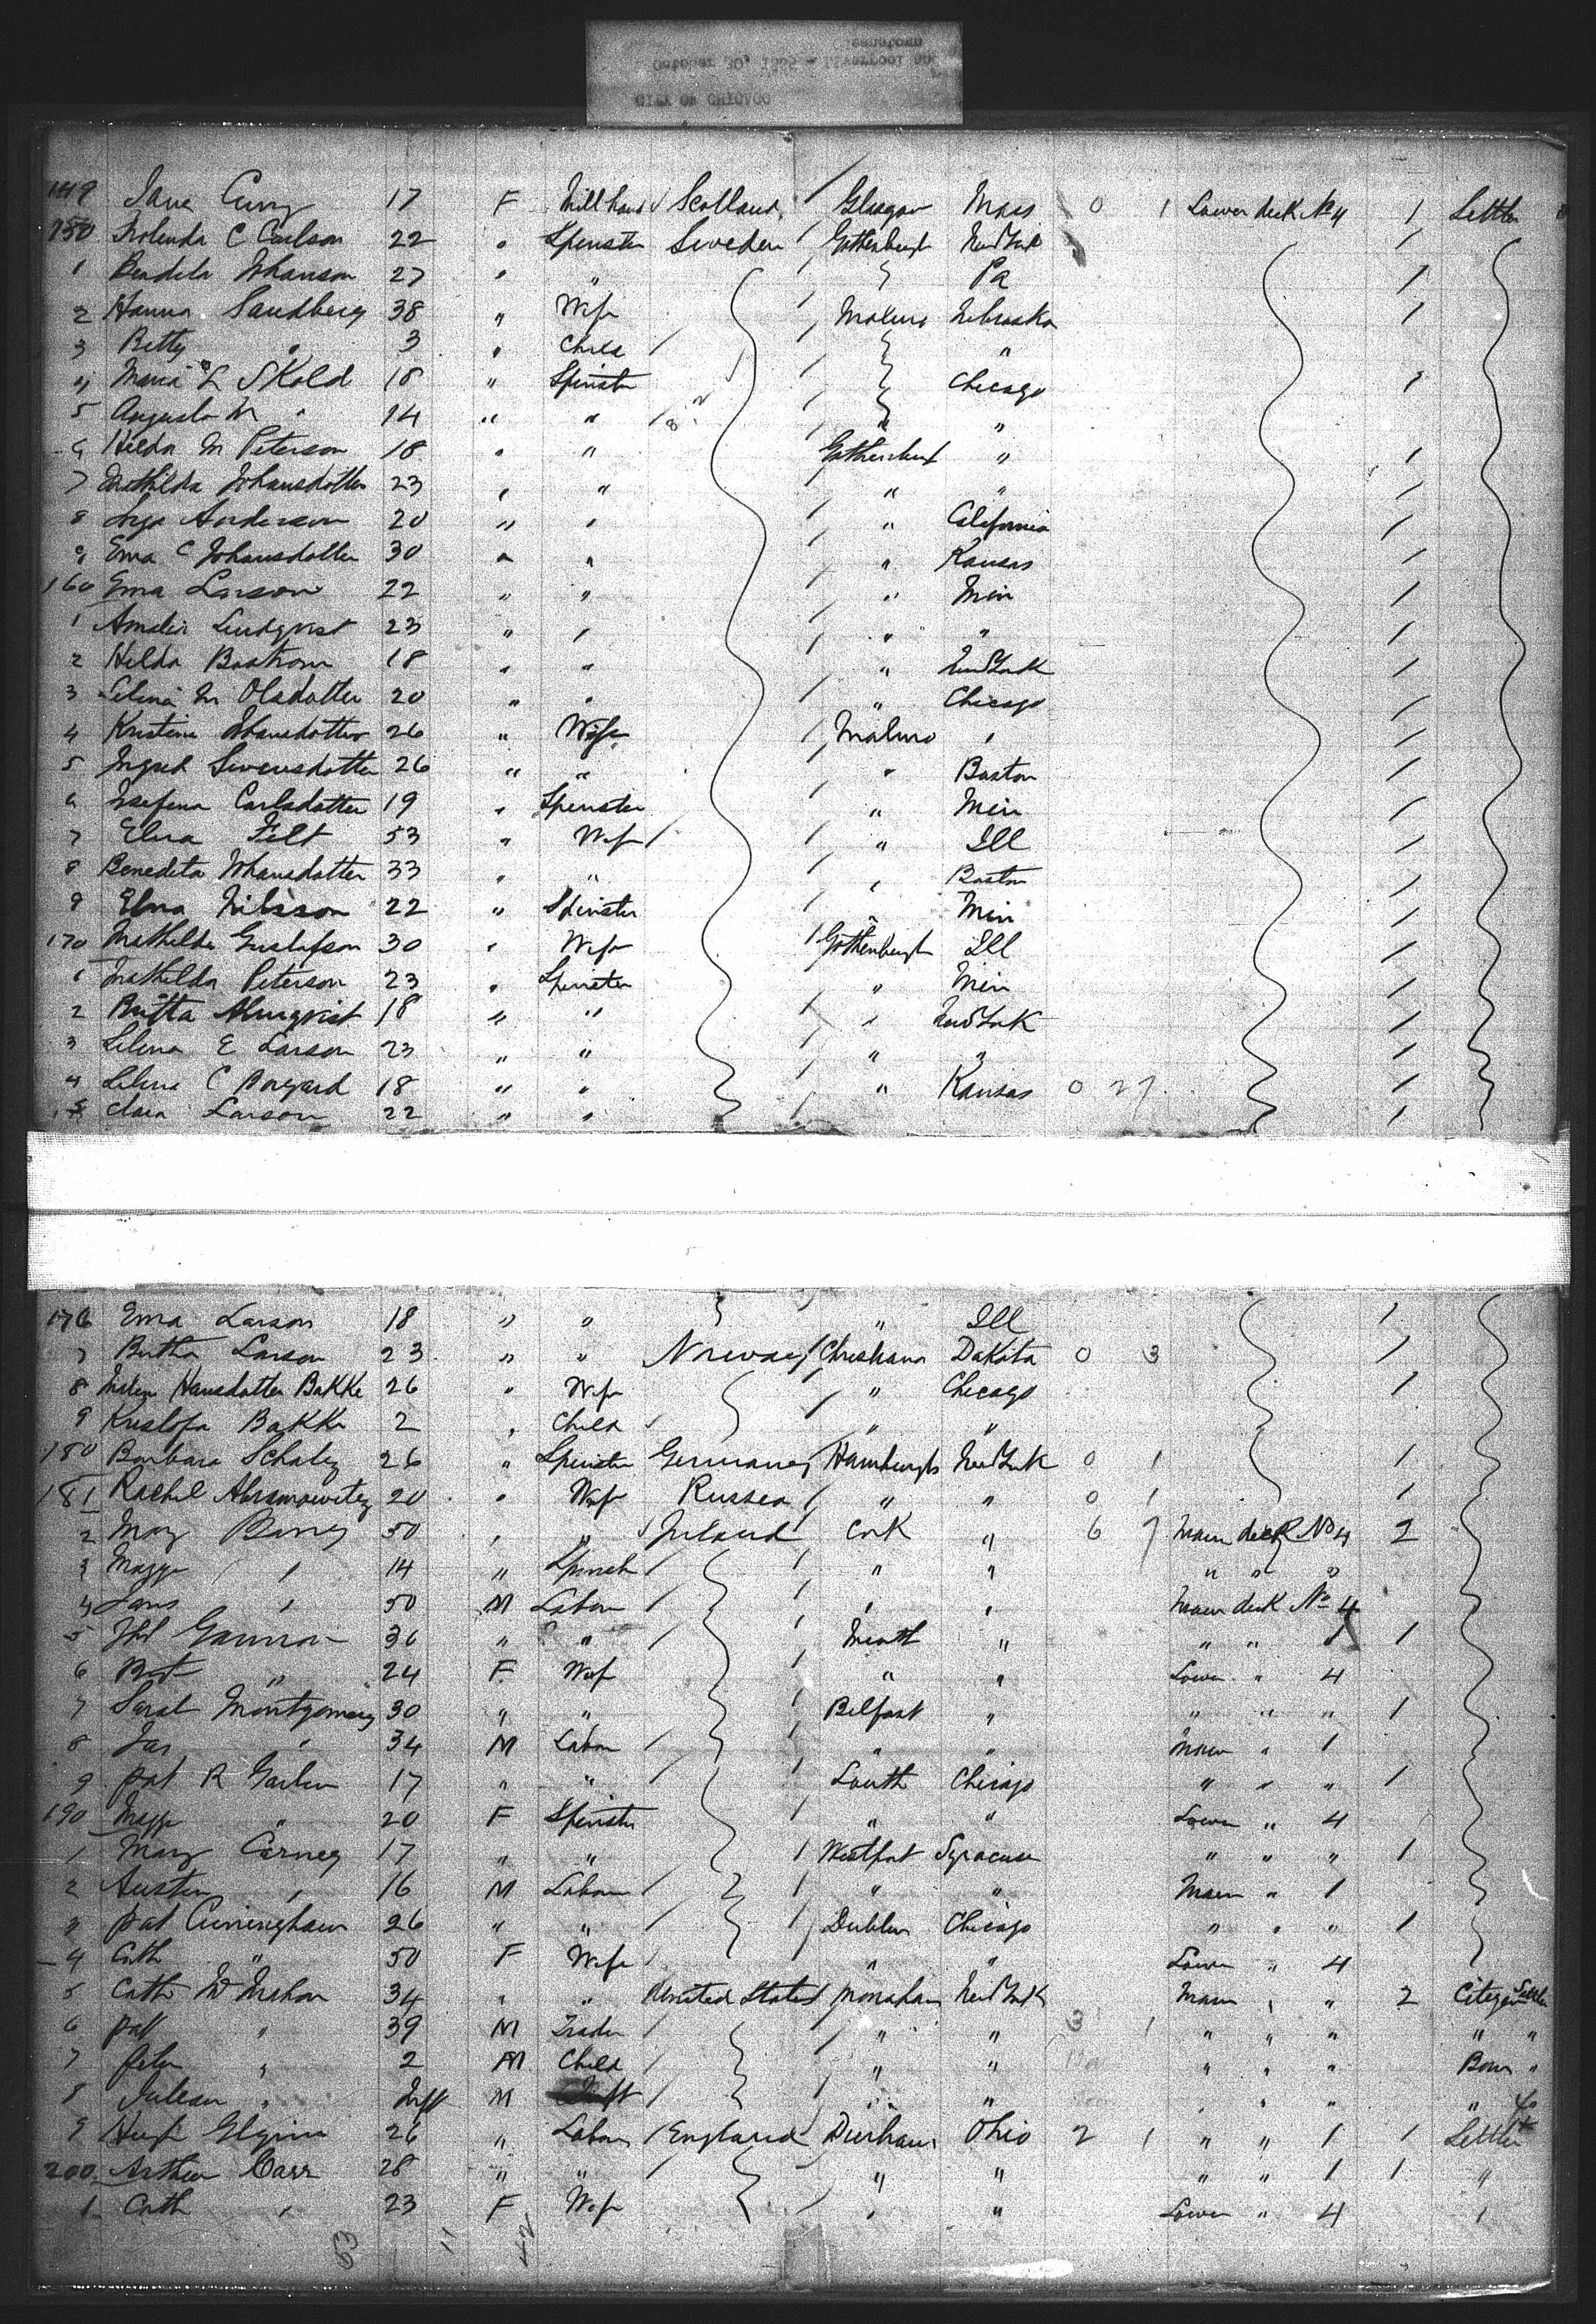 CITY OF CHICAGO
149 Jane Curry 17 F Mill hand Scotland Glasgow Mass 0 1 Lower deck No 4 1 Settler
150 C Carlson 22 " Spinster Sweden Gothenburgh New York
1 27 " " Pa
2 Hanna Sandberg 38 " Wife Malmo Nebraska
3 Betty " 3 " Child "
4 Maria L Skold 18 " Spinster Chicago
5 Augusta M " 14 " " " "
6 Hilda M Peterson 18 " " Gothenburg "
7 Mathilda Johansdotter 23 " " " "
8 Inga Anderson 20 " " " California
9 Ema C Johansdotter 30 " " " Kansas
160 Ema Larson 22 " " " Min
1 Amalia Lindqvist 23 " " " "
2 Hilda Bostrom 18 " " " New York
3 Selina M Olsdotter 20 " " " Chicago
4 Kristina Johansdotter 26 " Wife Malmo "
5 Ingred Swensdotter 26 " " " Boston
6 Josefina Carlsdotter 19 " Spinster " Min
7 Elna Felt 53 " Wife " Ill
8 Benedita Johansdotter 33 " " " Boston
9 Elna Nilsson 22 " Spinster " Min
170 Mathilda Gustafson 30 " Wife Gothenburgh Ill
1 Mathilda Peterson 23 " Spinster " Min
2 Britta Almqvist 18 " " " New York
3 Selina E Larson 23 " " " "
4 Selina C 18 " " " Kansas 0 27
5 Clara Larson 22 " "
176 Ema Larson 18 " " " Ill
7 Bertha Larson 23 " " Norway Christiana Dakota 0 3
8 Hansdotter Bakke 26 " Wife " Chicago
9 Bakke 2 " Child " "
180 Barbara 26 " Spinster Germany Hamburgh New York 0 1
181 Rachel Abramowitz 20 " Wife Russia " " 0 1
2 Mary 50 " " Ireland Cork " 6 7 Main deck No 4 2
3 Maggie " 14 " Spinster " " " " "
4 " 50 M Labor " " Main deck No 4
5 Gannon 36 " " Meath " " " 1 1
6 " 24 F Wife " " Lower " 4
7 Sarah Montgomery 30 " " Belfast " " " " 1
8 Jas " 34 M Labor " " Main " 1
9 Pat R 17 " " Louth Chicago " " " 1
190 Maggie " 20 F Spinster " " Lower " 4
1 Mary Carney 17 " " Westport Syracuse " " " 1
2 Austin " 16 M Labor " " Main " 1
3 Pat Cuningham 26 " " Dublin Chicago " " " 1
4 Cath " 50 F Wife " " Lower " 4
5 Cath McMahon 34 " " United States Monahan New York Main " " 2 Citizen
6 Pat " 39 M Trader " " 3 1 " " " " "
7 " 2 M Child " " " " " Born "
8 " Inft M Inft " " " " " "
9 Hugh 26 " Labor England Durham Ohio 2 1 " " 1 1 Settler
200 Arthur Carr 28 " " " " " " 1 1 "
1 Cath " 23 F Wife " " Lower " 4